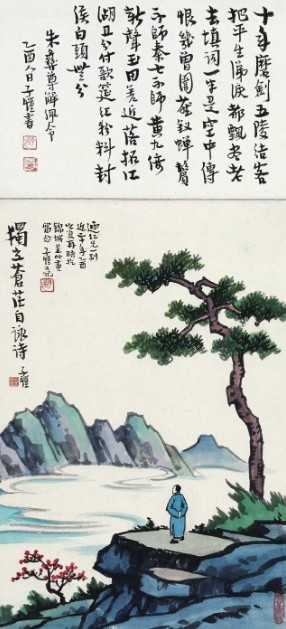 十年磨劍五陵結客
把平生涕淚都飄盡老
去填詞一半是空中傳
恨幾曾圍燕釵蟬鬢
不師秦七不師黃九倚
新聲玉田差近落拓江
湖且分付歌筵紅粉料封
侯白頭無分
朱彝尊解佩令
乙酉人日子愷書
獨立蒼茫自詠詩
子愷